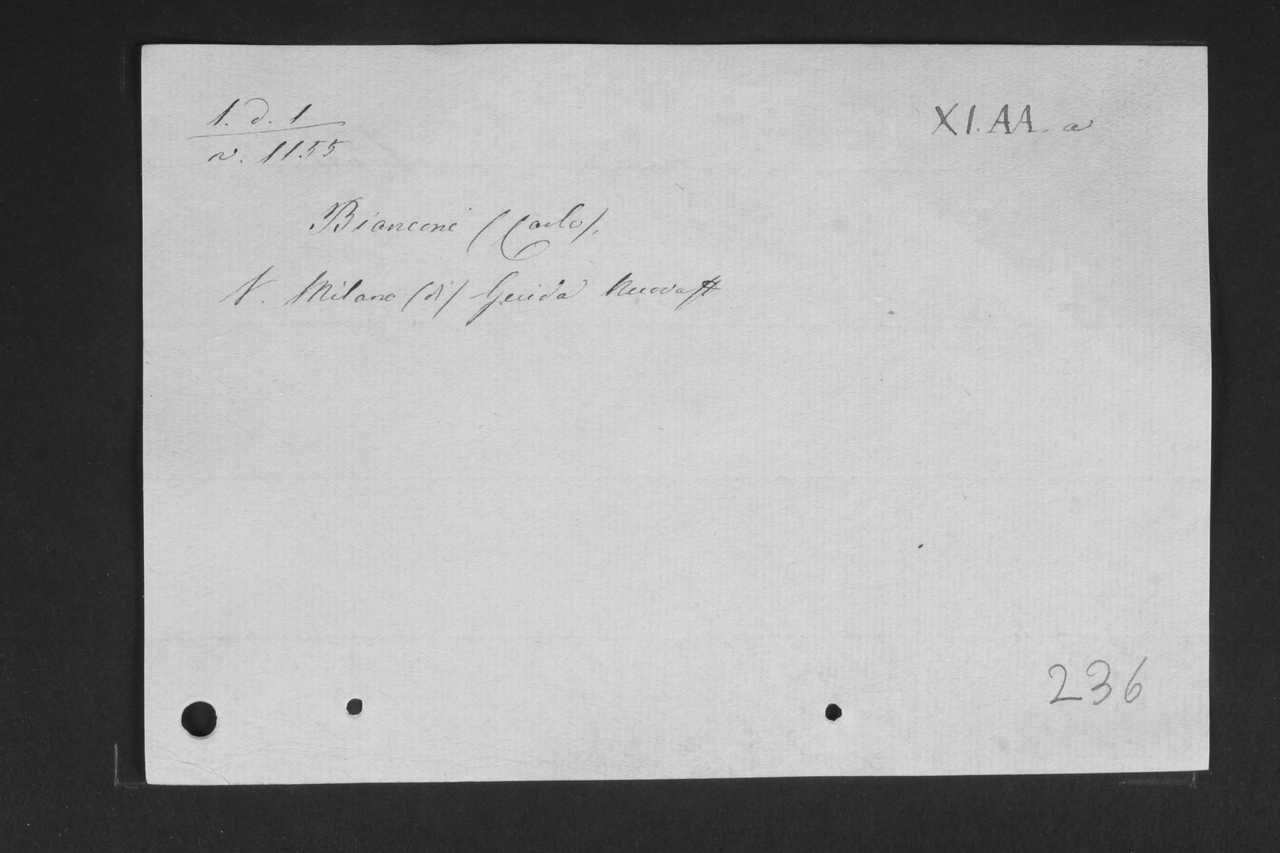 1. d. 1
n. 1155
XI. AA. a
Bianconi (Carlo).
V. Milano (di) Guida Nuova
236